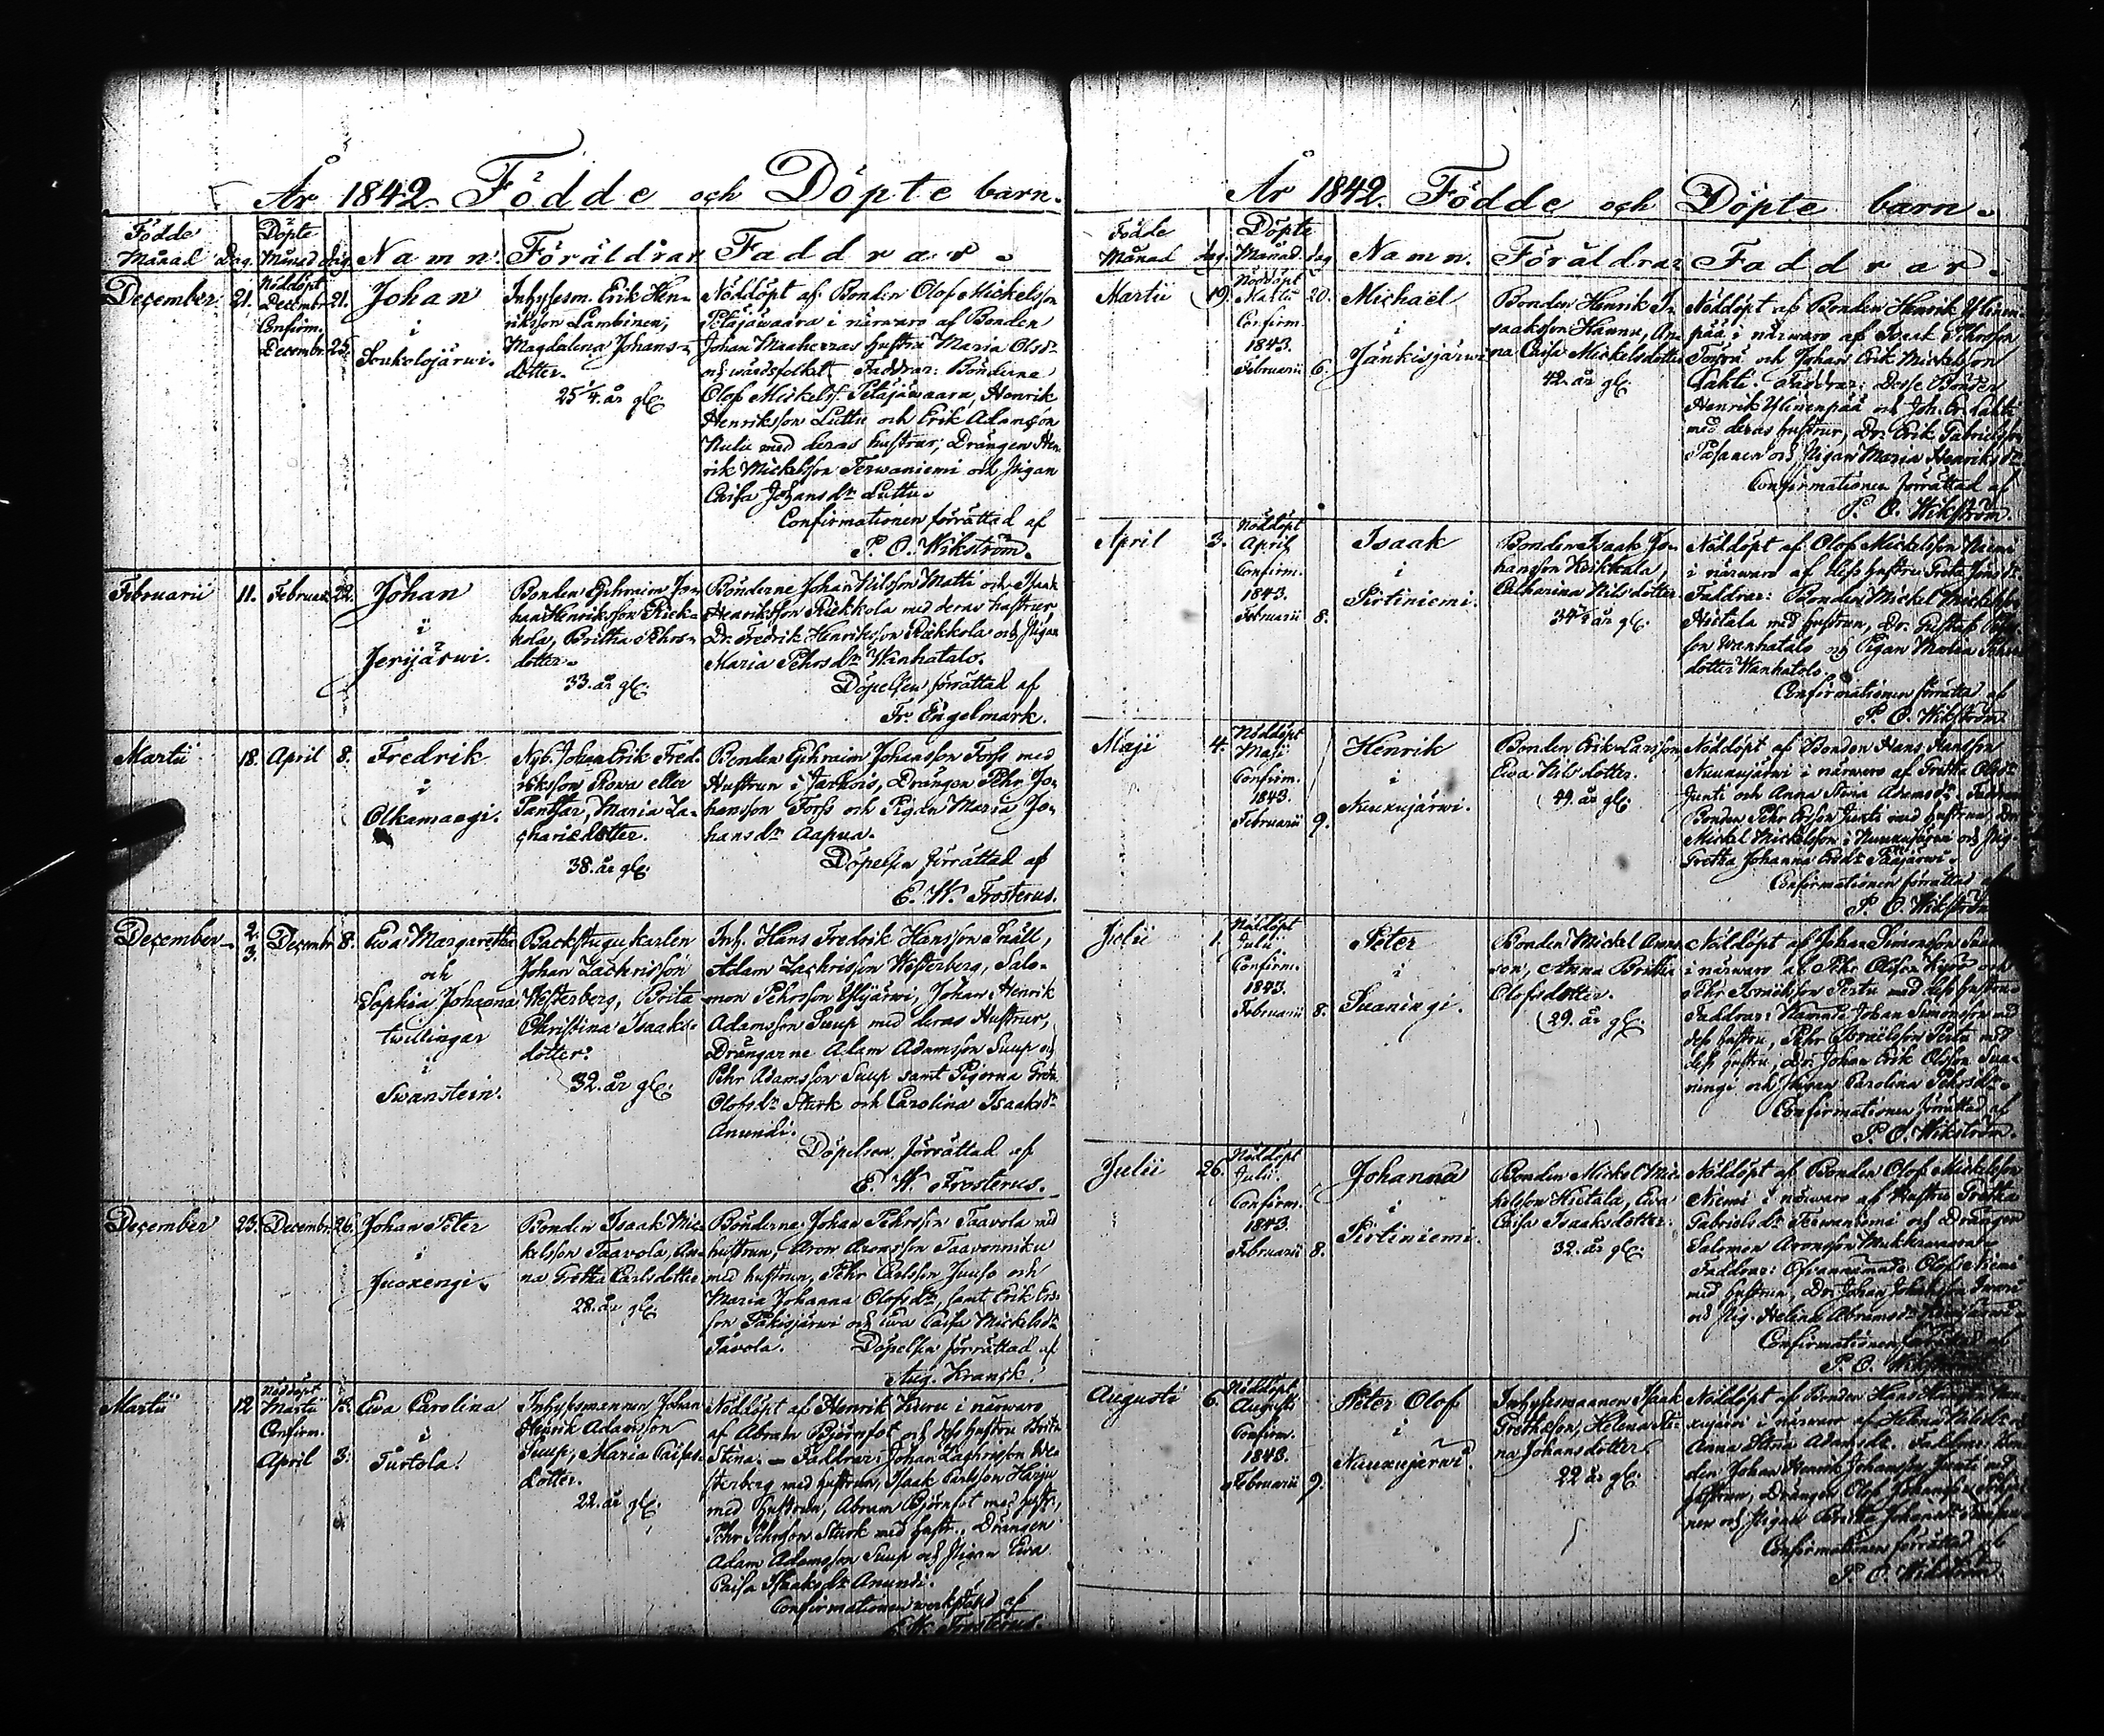 År 1842 Födde och Döpte barn.
Födde Månad Dag. Döpte Månad dag Namn. Föräldrar Faddrar.
December 21. Nöddöpt Decembr 21. Confirm. Decembr 25.
Johan
i
Soukolojärwi.
Inhysesm. Erik Hen-
riksson Lambinen,
Magdalena Johans-
dotter.
25 1/4 år gl.
Nöddöpt af Bonden Olof Mickelsson
Petäjäwaara i närwaro af Bonden
Johan Maaherras hustru Maria Olsdr
och wårdsfolket. Faddrar: Bönderne
Olof Mickelss. Petäjäwaara, Henrik
Henriksson Luttu och Erik Adamsson
med deras hustrur, Drängen Hen-
rik Mickelsson Terwaniemi och Pigan
Caisa Johansdr Luttu.
Confirmationen förrättad af
P. O. Wikström.
Februarii 11. Februar. 22.
Johan
i
Jerijärwi.
Bonden Ephraim Jo-
han Henriksson Riek-
kola, Britha Pehrs-
dotter.
33. år gl.
Bönderne Johan Nilsson Matti och Isaak
Henriksson Riekkola med deras hustrur
Dr. Fredrik Henriksson Riekkola och Pigan
Maria Pehrsdr Wanhatalo.
Döpelsen förrättad af
Fr. Engelmark.
Martii 18. April 8.
Fredrik
i
Olkamangi.
Nyb. Johan Erik Fred-
riksson Rowa eller
Pantsar, Maria Za-
chariedotter.
38. år gl.
Bonden Ephraim Johansson Forss med
Hustrun i Jarhois, Drängen Pehr Jo-
hansson Forss och Pigan Maria Jo-
hansdr Aapua.
Döpelsen förrättad af
E. W. Frosterus.
December 2. 3. Decembr 8.
Ewa Margaretha
och
Sophia Johanna
twillingar
i
Swanstein.
Backstugukarlen
Johan Zachrisson
Westerberg, Brita
Christina Isaaks-
dotter.
32. år gl.
Inh. Hans Fredrik Hansson Snäll,
Adam Zachrisson Westerberg, Salo-
mon Pehrsson Ylijärwi, Johan Henrik
Adamsson Suup med deras Hustrur,
Drängarne Adam Adamsson Suup och
Pehr Adamsson Suup samt Pigorna Greta
Olofsdr Sturk och Carolina Isaaksdr
Anundi.
Döpelsen förrättad af
E. W. Frosterus.
December 23. Decembr. 26.
Johan Peter
i
Juoxengi.
Bonden Isaak Mic-
kelsson Taavola, An-
na Gretha Carlsdotter
28. år gl.
Bönderne Johan Pehrsson Taavola med
hustrun, Aron Aronsson Taavonniku
med hustrun, Pehr Carlsson Juuso och
Maria Johanna Olofsdr, samt Erik Ers-
son Päkisjärwi och Ewa Caisa Mickelsdr
Tavola. Döpelsen förrättad af
Aug. Kransk.
Martii 12 Nöddöpt Martii 12. Confirm. April 3.
Ewa Carolina
i
Turtola.
Inhysesmannen Johan
Henrik Adamsson
Suup, Maria Caisas-
dotter.
22. år gl.
Nöddöpt af Henrik Kuru i närwaro
af Abram Björnfot och dess hustru Brita
Stina. — Faddrar: Johan Zachrisson We-
sterberg med hustrun, Isaak Carlsson Harju
med hustrun, Abram Björnfot med hustr.,
Pehr Pehrsson Sturk med hustr., Drängen
Adam Adamsson Suup och Pigan Ewa
Caisa Isaaksdr Anundi.
Confirmationen werkstäld af
E. W. Frosterus.
År 1842. Födde och Döpte barn.
Födde Månad dag. Döpte Månad dag Namn. Föräldrar Faddrar.
Martii 19. Nöddöpt Martii 20. Confirm. 1843. Februarii 6.
Michaël
i
Jänkisjärwi
Bonden Henrik I-
saaksson Hannu, An-
na Caisa Mickelsdotter
42. år gl.
Nöddöpt af Bonden Henrik Ylinen-
pää i närwaro af Isaak Pehrsson
och Johan Erik Mickelsson
Lahti. Faddrar: Desse Bönder
Henrik Ylinenpää och Joh. Er. Lahti
med deras hustrur, Dr. Erik Gabrielsson
Pasanen och Pigan Maria Henriksdr
Confirmationen förrättad af
P. O. Wikström.
April 3. Nöddöpt April Confirm. 1843. Februarii 8.
Isaak
i
Pirtiniemi.
Bonden Isaak Jo-
hansson Keikkala,
Catharina Nilsdotter.
34 1/2 år gl.
Nöddöpt af Olof Mickelsson Niemi
i närwaro af dess hustru Greta Jönsdr
Faddrar: Bonden Mickel Mickelsson
Hietala med hustrun, Dr. Gustaf
son Wanhatalo och Pigan Maria Pehrs-
dotter Wanhatalo.
Confirmationen förrättad af
P. O. Wikström
Maji 4. Nöddöpt Maji Confirm. 1843. Februarii 9.
Henrik
i
Nuuxujärwi.
Bonden Erik Larsson,
Ewa Nilsdotter.
44. år gl.
Nöddöpt af Bonden Hans Hansson
Nuuxujärwi i närwaro af Gretha Olofsdr
Junti och Anna Stina Adamsdr. Faddrar
Bonden Pehr Ersson Junti med hustrun, Dr.
Mickel Mickelsson i Nuuxujärwi och Pig.
Gretha Johanna Ersdr Pääjärwi.
Confirmationen förrättad af
P. O. Wikström
Julii 1. Nöddöpt Julii Confirm. 1843. Februarii 8.
Peter
i
Suaningi.
Bonden Mickel Anns-
son, Anna Britha
Olofsdotter.
29. år gl.
Nöddöpt af Johan Simonsson
i närwaro af Pehr Olsson Kyrö och
Pehr Israelsson Pertu med dess hustru
Faddrar: Johan Simonsson med
dess hustru, Pehr Israelsson Pertu med
dess hustru, Dr. Johan Erik Olsson Sua-
ningi och Pigan Carolina Pehrsdr.
Confirmationen förrättad af
P. O. Wikström.
Julii 26. Nöddöpt Julii. Confirm. 1843. Februarii 8.
Johanna
i
Pirtiniemi.
Bonden Mickel Mic-
kelsson Hietala, Ewa
Caisa Isaaksdotter.
32. år gl.
Nöddöpt af Bonden Olof Mickelsson
Niemi i närwaro af Hustru Gretha
Gabrielsdr Terwaniemi och Drängen
Salomon Aronsson Mukkawaara.
Faddrar: Ofvannämnde Olof Niemi
med hustrun, Dr. Johan
och Pig. Helena Abramsdr
Confirmationen förrättad af
P. O. Wikström
Augusti 6. Nöddöpt Augusti Confirm. 1843. Februarii 9.
Peter Olof
i
Nuuxujärwi.
Inhysesmannen Isaak
Grethsson, Helena Sti-
na Johansdotter
22 år gl.
Nöddöpt af Bonden Hans Hansson Nuu-
xujärwi i närwaro af Helena Nilsdr och
Anna Stina Adamsdr. Faddrar: Bon-
den Johan Henrik Johansson Junti med
hustrun, Drängen Olof Johansson
och Pigan Britha Johansdr
Confirmationen förrättad af
P. O. Wikström